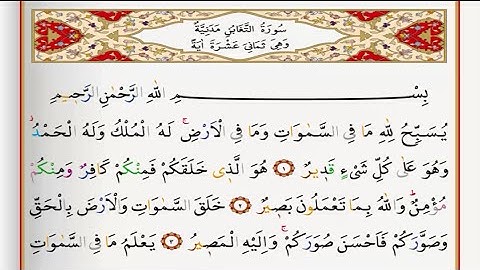 سُورَةُ التَّغَابُنِ مَدَنِيَّةٌ
وَهِيَ ثَمَانِيَ عَشْرَةَ اٰيَةً
بِسْمِ اللّٰهِ الرَّحْمٰنِ الرَّحٖيمِ
يُسَبِّحُ لِلّٰهِ مَا فِي السَّمٰوَاتِ وَمَا فِي الْاَرْضِۚ لَهُ الْمُلْكُ وَلَهُ الْحَمْدُۘ
وَهُوَ عَلٰى كُلِّ شَيْءٍ قَدٖيرٌ ﴿١﴾ هُوَ الَّذٖي خَلَقَكُمْ فَمِنْكُمْ كَافِرٌ وَمِنْكُمْ
مُؤْمِنٌۜ وَاللّٰهُ بِمَا تَعْمَلُونَ بَصٖيرٌ ﴿٢﴾ خَلَقَ السَّمٰوَاتِ وَالْاَرْضَ بِالْحَقِّ
وَصَوَّرَكُمْ فَاَحْسَنَ صُوَرَكُمْۚ وَاِلَيْهِ الْمَصٖيرُ ﴿٣﴾ يَعْلَمُ مَا فِي السَّمٰوَاتِ